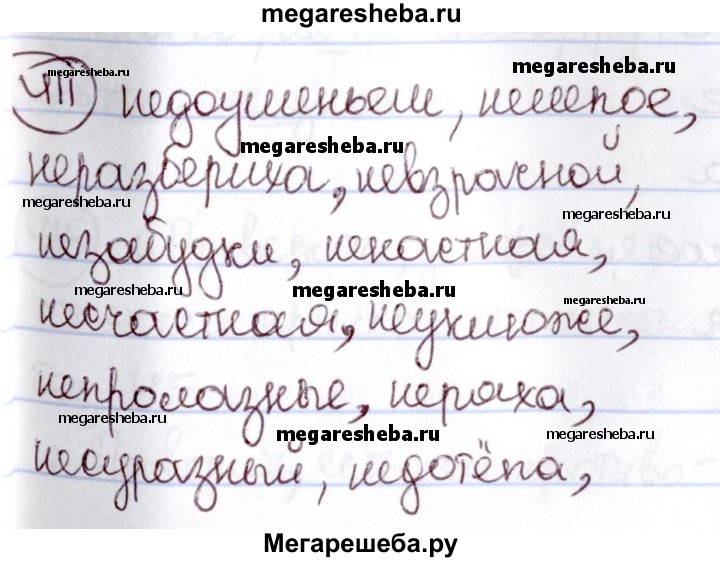 megaresheba.ru
megaresheba.ru megaresheba.ru
ЧIII недоуменьем, нелепое,
megaresheba.ru
неразбериха, невзрачной,
megaresheba.ru megaresheba.ru
незабудки, ненастная,
megaresheba.ru megaresheba.ru
несчастная, неуклюже,
megaresheba.ru
непролазные, неряха,
megaresheba.ru megaresheba.ru megaresheba.ru
несуразный, недотёпа,
Мегарешеба.ру